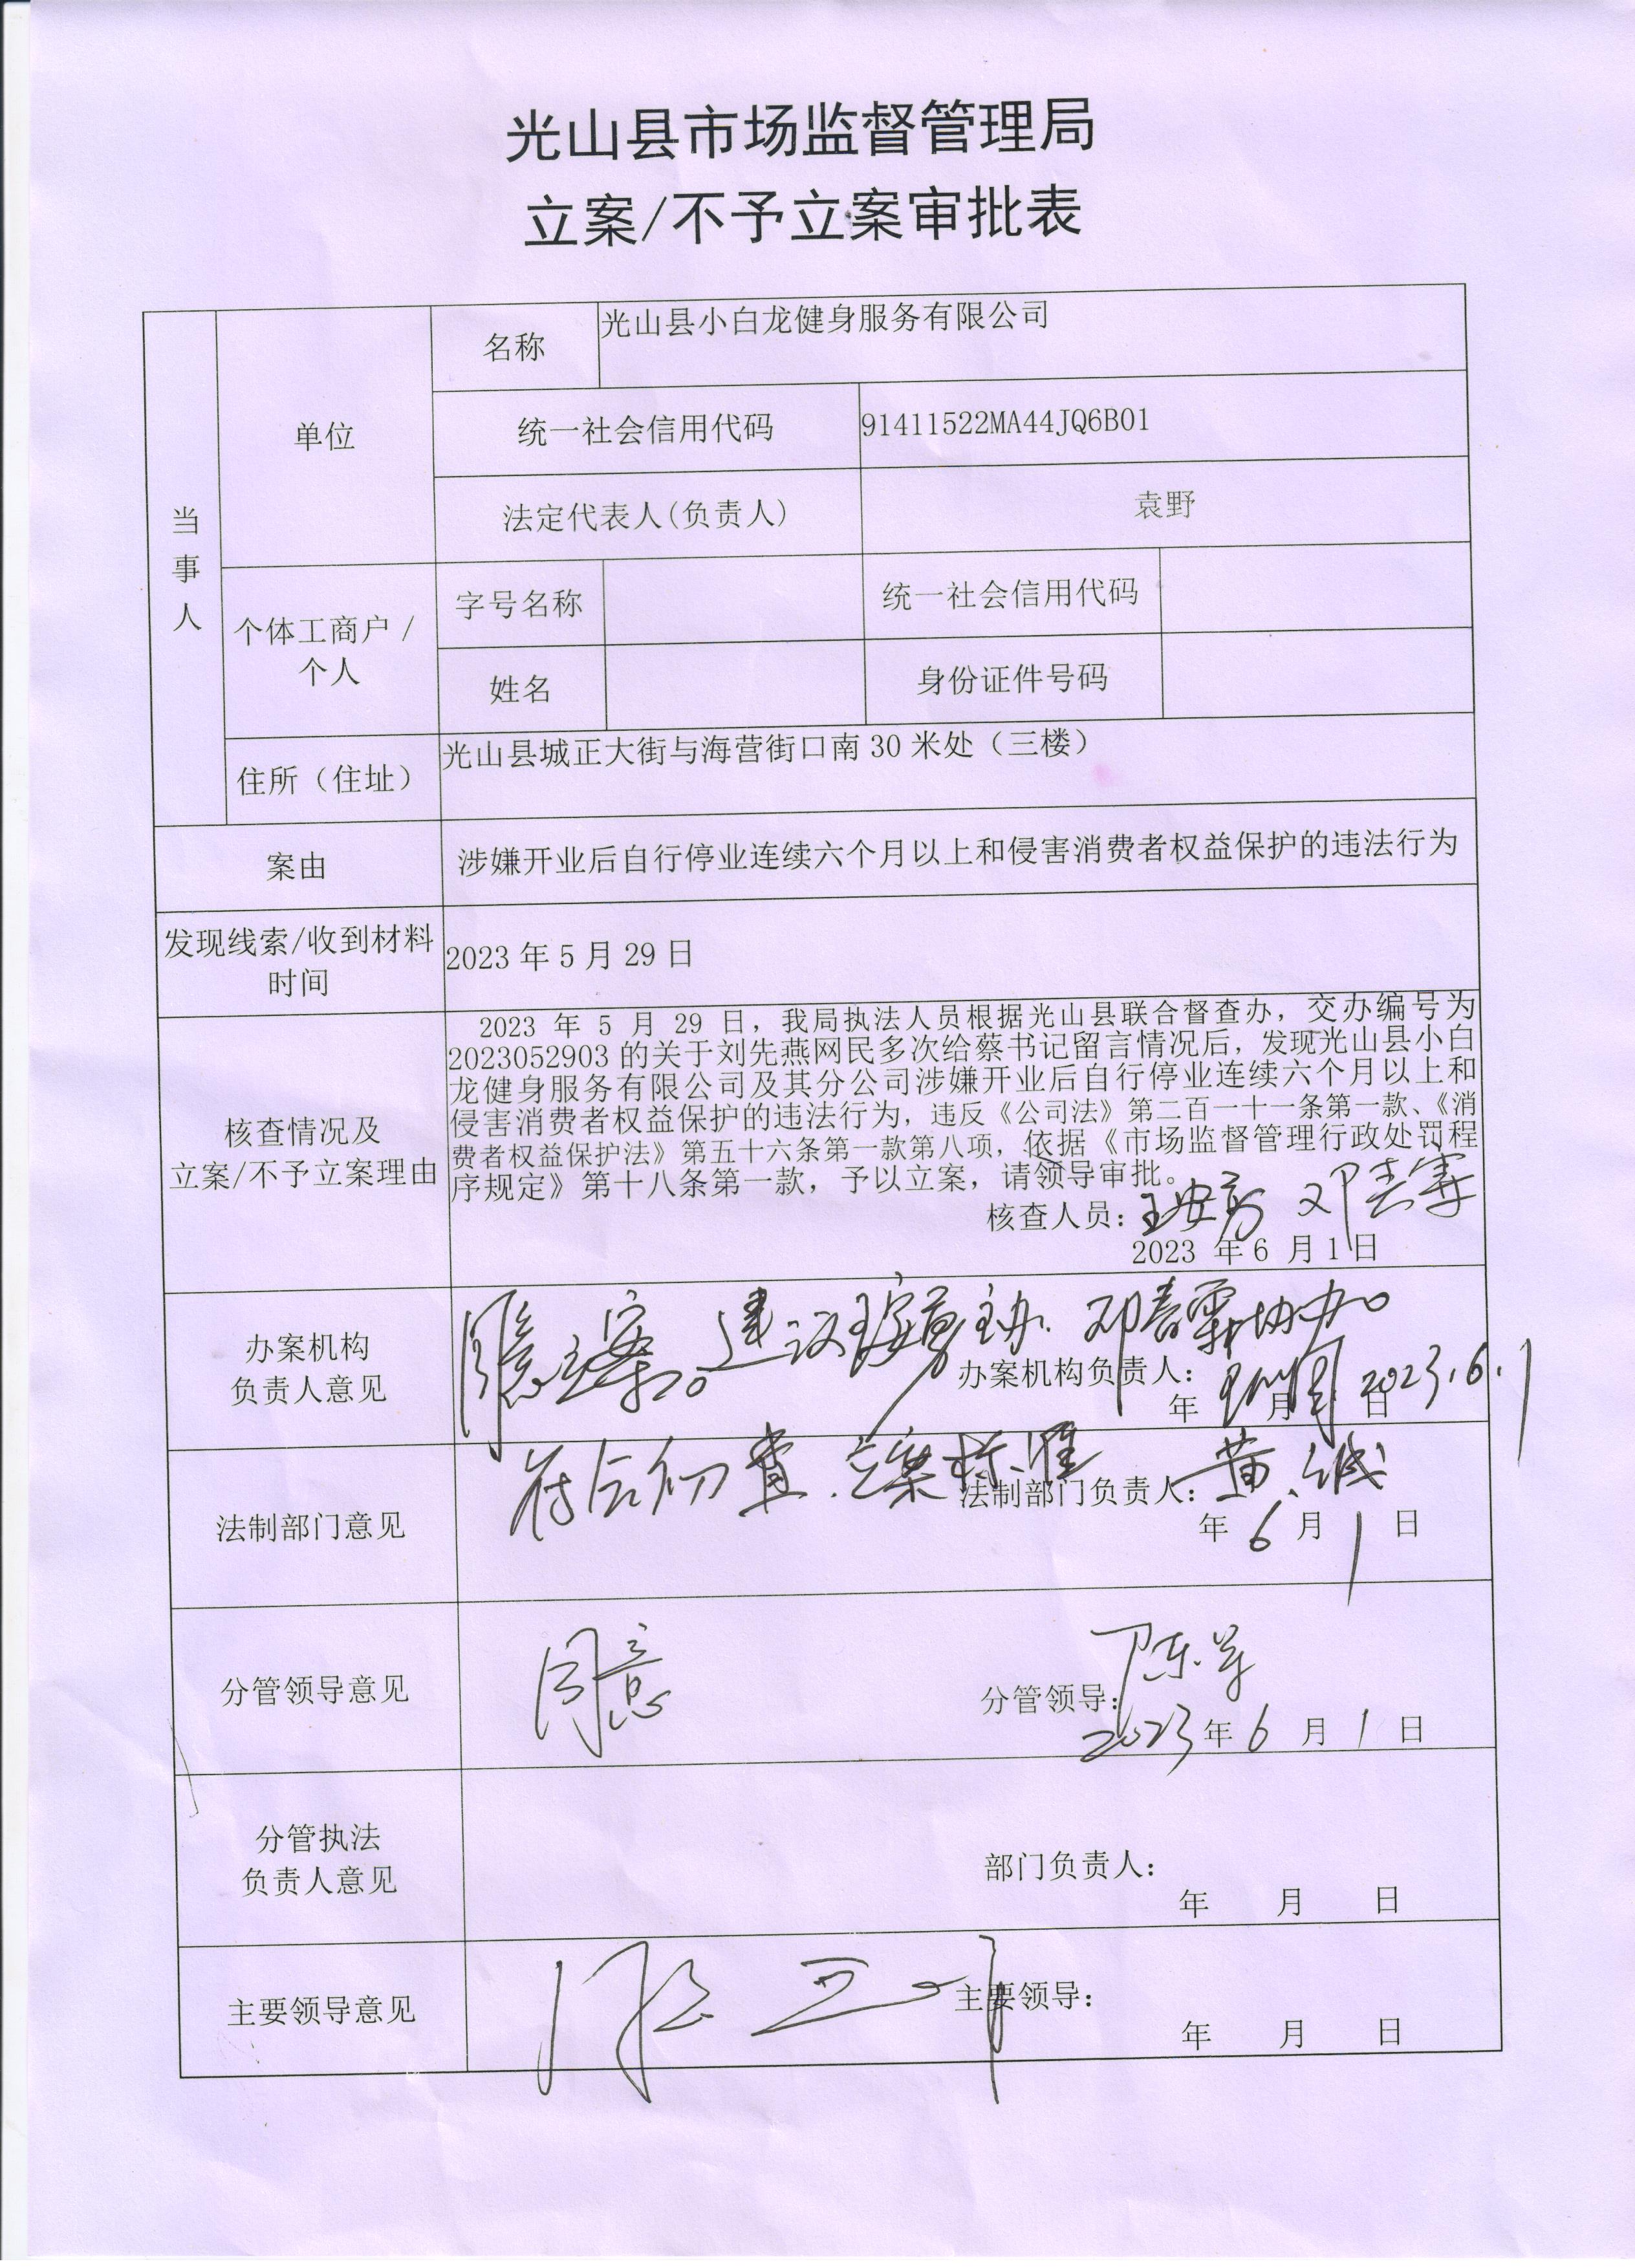 光山县市场监督管理局
立案/不予立案审批表
当事人
单位
名称
光山县小白龙健身服务有限公司
统一社会信用代码
91411522MA44JQ6B01
法定代表人(负责人)
袁野
个体工商户/
个人
字号名称
统一社会信用代码
姓名
身份证件号码
住所（住址）
光山县城正大街与海营街口南30米处（三楼）
案由
涉嫌开业后自行停业连续六个月以上和侵害消费者权益保护的违法行为
发现线索/收到材料
时间
2023年5月29日
核查情况及
立案/不予立案理由
2023 年 5 月 29 日，我局执法人员根据光山县联合督查办，交办编号为
2023052903的关于刘先燕网民多次给蔡书记留言情况后，发现光山县小白
龙健身服务有限公司及其分公司涉嫌开业后自行停业连续六个月以上和
侵害消费者权益保护的违法行为，违反《公司法》第二百一十一条第一款、《消
费者权益保护法》第五十六条第一款第八项，依据《市场监督管理行政处罚程
序规定》第十八条第一款，予以立案，请领导审批。
核查人员：
2023 年6 月1日
办案机构
负责人意见
同意立案。建议 主办. 邓春霖协办
办案机构负责人：
年 月 日 2023.6.1
法制部门意见
符合初查.立案标准
法制部门负责人：黄诚
年 6 月 1 日
分管领导意见
同意
分管领导：陈军
2023年 6 月 1 日
分管执法
负责人意见
部门负责人：
年 月 日
主要领导意见
主要领导：
年 月 日